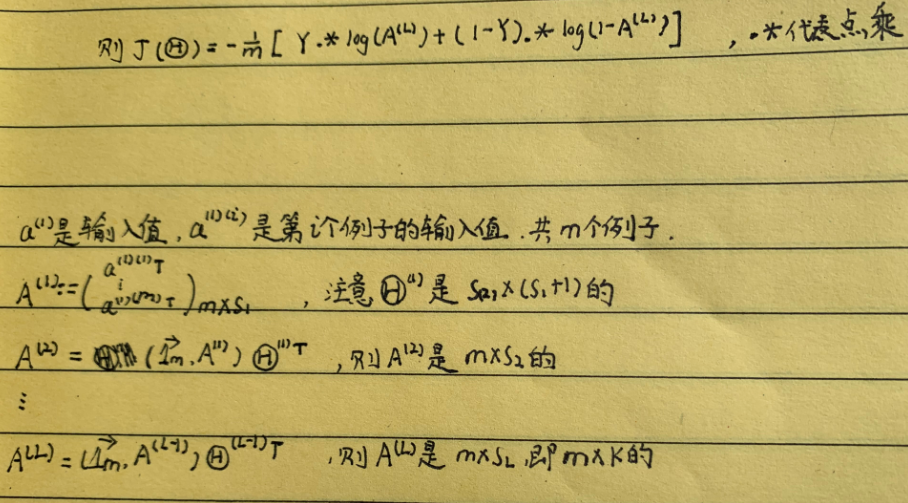 则 J(Θ) = -1/m [ Y.* log(A^(L)) + (1-Y).* log(1-A^(L)) ] , .*代表点乘
a^(1)是输入值, a^(1)(i) 是第i个例子的输入值. 共m个例子.
A^(1):=(a^(1)(1)T ⋮ a^(1)(m)T)_m×S₁ , 注意 Θ^(1) 是 S₂×(S₁+1)的
A^(2) = (1⃗_m, A^(1)) Θ^(1)T , 则 A^(2)是 m×S₂的
⋮
A^(L) = (1⃗_m, A^(L-1)) Θ^(L-1)T , 则 A^(L)是 m×S_L 即 m×K的